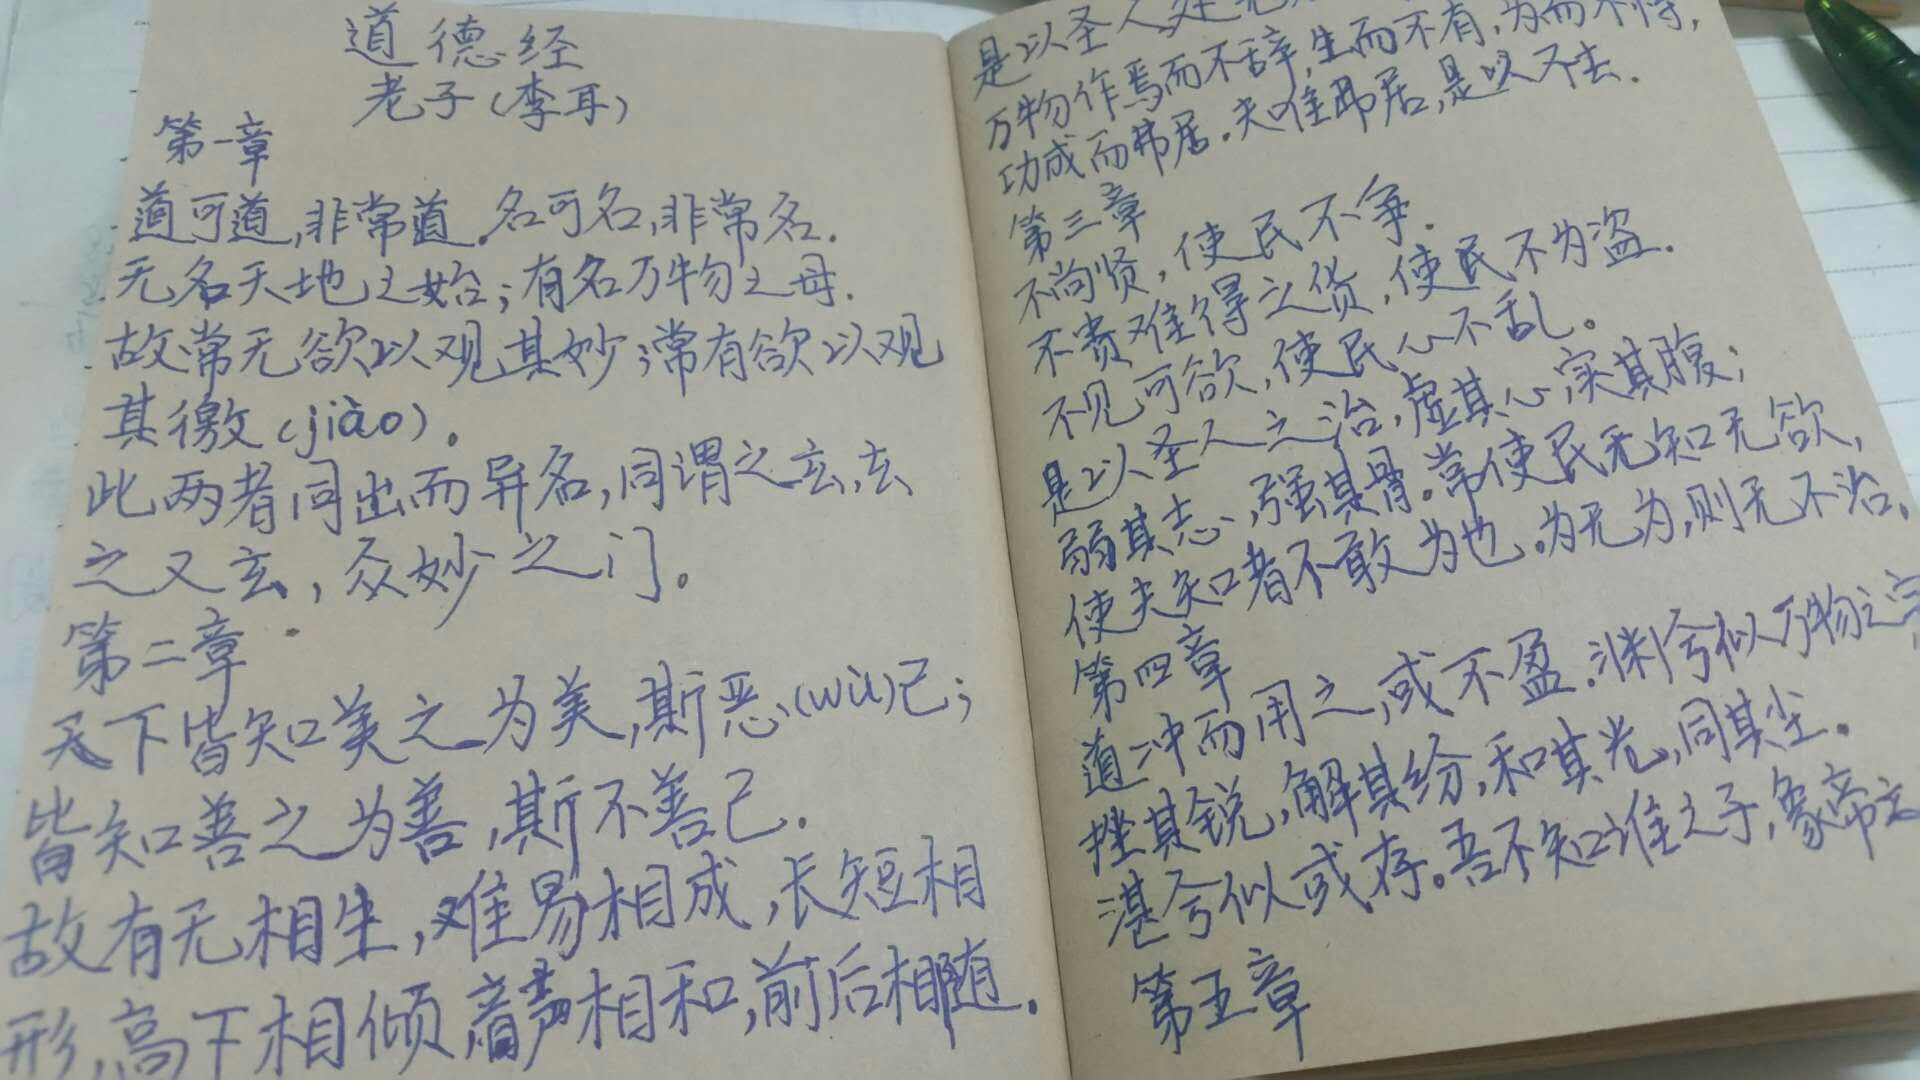 道德经
老子(李耳)
第一章
道可道,非常道.名可名,非常名.
无名天地之始;有名万物之母.
故常无欲以观其妙;常有欲以观
其徼(jiào)。
此两者同出而异名,同谓之玄,玄
之又玄,众妙之门。
第二章
天下皆知美之为美,斯恶(wù)己;
皆知善之为善,斯不善己.
故有无相生,难易相成,长短相
形,高下相倾,音声相和,前后相随.
是以圣人处无
万物作焉而不辞,生而不有,为而不恃,
功成而弗居.夫唯弗居,是以不去.
第三章
不尚贤,使民不争.
不贵难得之货,使民不为盗.
不见可欲,使民心不乱。
是以圣人之治,虚其心,实其腹;
弱其志,强其骨。常使民无知无欲,
使夫知者不敢为也.为无为,则无不治.
第四章
道冲而用之,或不盈.渊兮似万物之宗,
挫其锐,解其纷,和其光,同其尘。
湛兮似或存。吾不知谁之子,象帝之
第五章